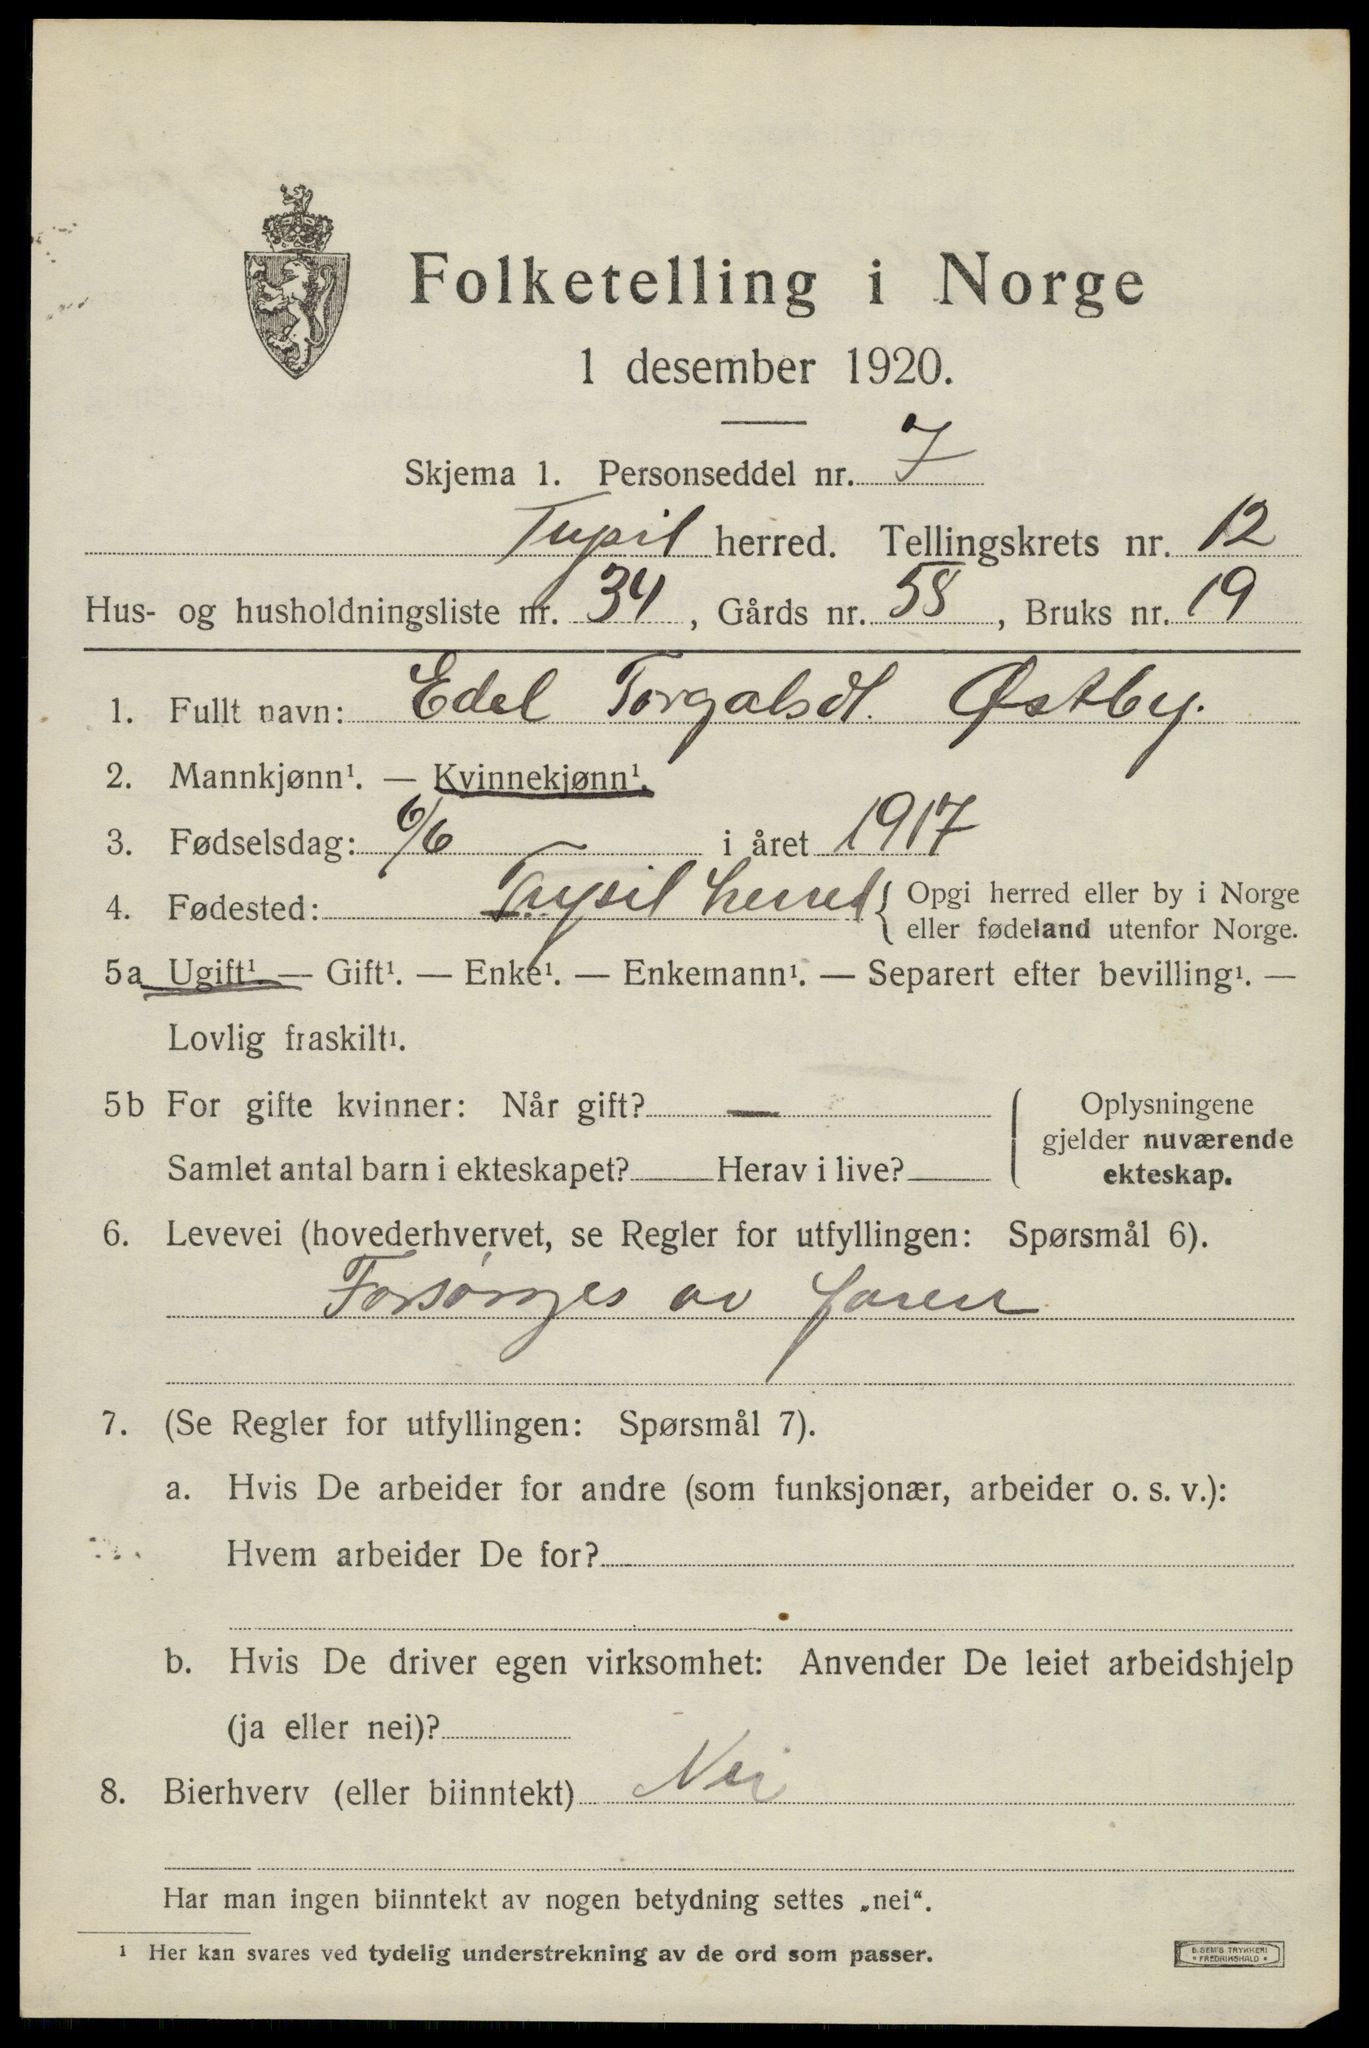 Folketelling i Norge
1 desember 1920.
Skjema 1. Personseddel nr. 7
Trysil herred. Tellingskrets nr. 12
Hus- og husholdningsliste nr. 34, Gårds nr. 58, Bruks nr. 19
1. Fullt navn: Edel Torgalsdt. Østby.
2. Mannkjønn¹. — Kvinnekjønn¹.
3. Fødselsdag: 6/6 i året 1917
4. Fødested: Trysil herred { Opgi herred eller by i Norge
eller fødeland utenfor Norge.
5a Ugift¹ — Gift¹. — Enke¹. — Enkemann¹. — Separert efter bevilling¹. —
Lovlig fraskilt¹.
5b For gifte kvinner: Når gift? —
Samlet antal barn i ekteskapet? Herav i live?
Oplysningene
gjelder nuværende
ekteskap.
6. Levevei (hovederhvervet, se Regler for utfyllingen: Spørsmål 6).
Forsørges av faren
7. (Se Regler for utfyllingen: Spørsmål 7).
a. Hvis De arbeider for andre (som funksjonær, arbeider o. s. v.):
Hvem arbeider De for?
b. Hvis De driver egen virksomhet: Anvender De leiet arbeidshjelp
(ja eller nei)?
8. Bierhverv (eller biinntekt) Nei
Har man ingen biinntekt av nogen betydning settes „nei“.
¹ Her kan svares ved tydelig understrekning av de ord som passer.
B. SEM'S TRYKKERI
• FREDRIKSHALD •